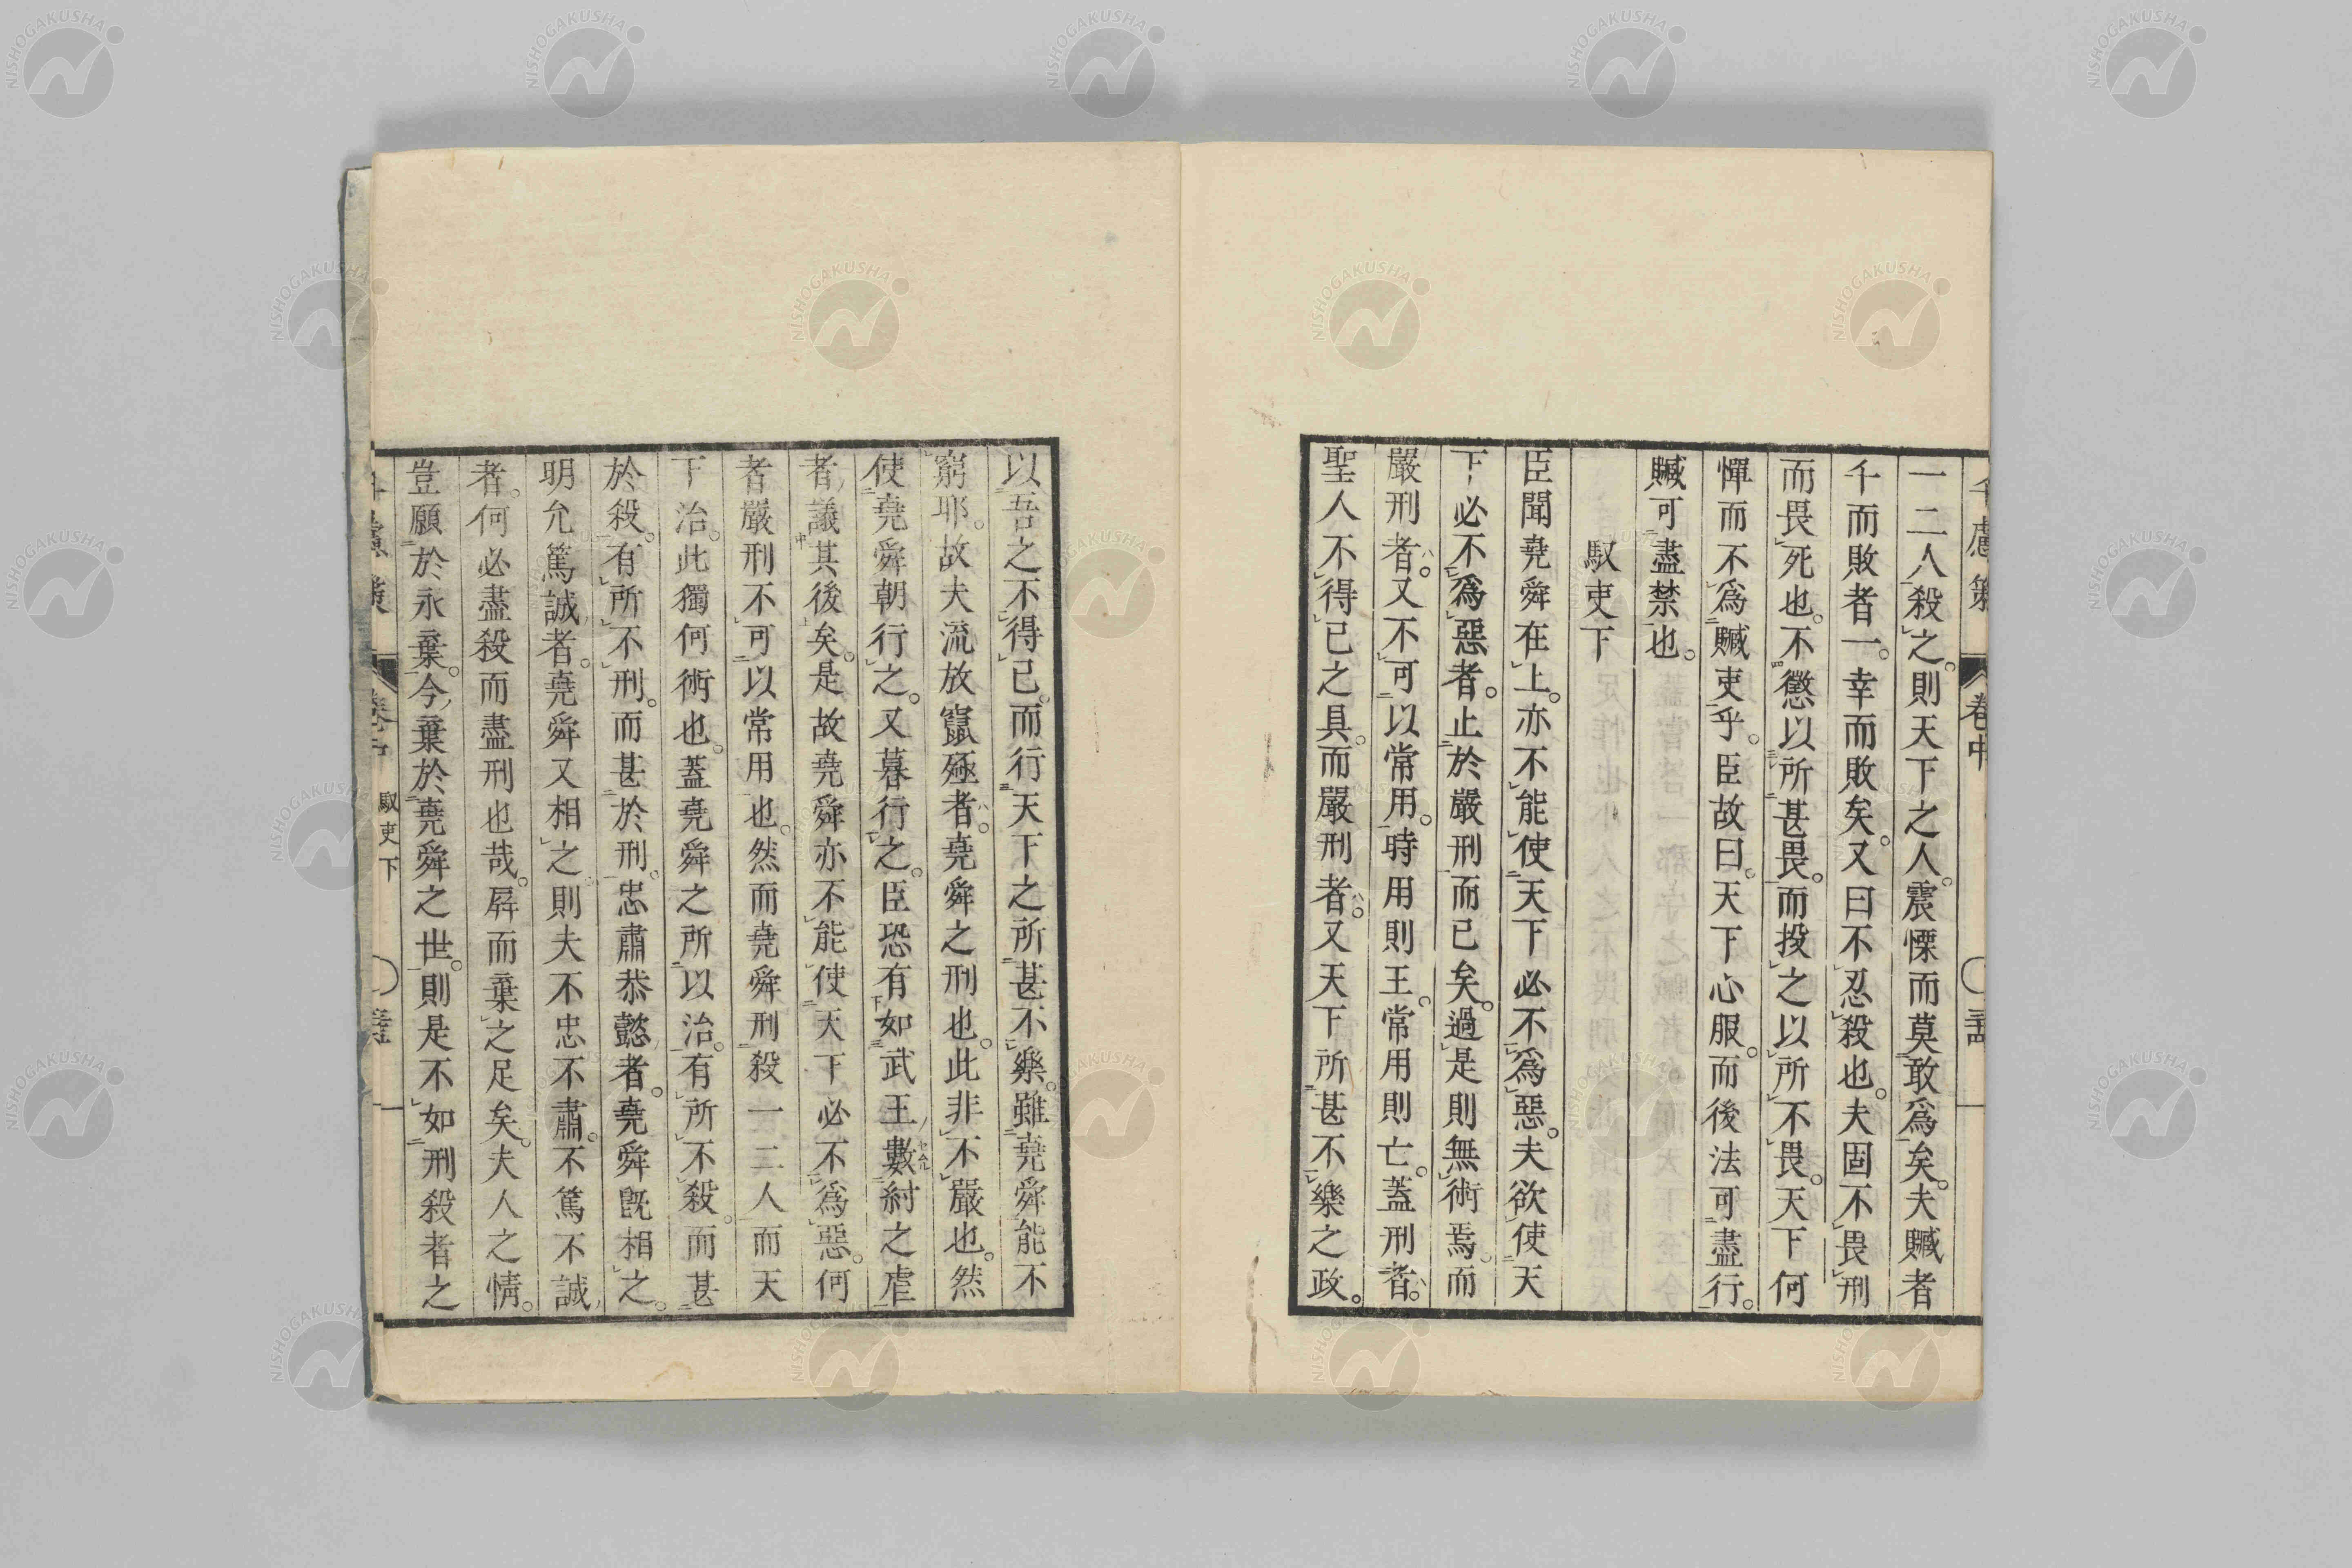 千慮策 卷中
一二人殺之。則天下之人。震慄而莫敢爲矣。夫贓者
千而敗者一。幸而敗矣。又曰不忍殺也。夫固不畏刑
而畏死也。不懲以所甚畏。而投之以所不畏。天下何
憚而不爲贓吏乎。臣故曰。天下心服。而後法可盡行。
贓可盡禁也。
馭吏下
臣聞堯舜在上。亦不能使天下必不爲惡。夫欲使天
下必不爲惡者。止於嚴刑而已矣。過是則無術焉。而
嚴刑者。又不可以常用。時用則王。常用則亡。蓋刑者。
聖人不得已之具。而嚴刑者。又天下所甚不樂之政。
以吾之不得已。而行天下之所甚不樂。雖堯舜能不
窮耶。故夫流放竄殛者。堯舜之刑也。此非不嚴也。然
使堯舜朝行之。又暮行之。臣恐有如武王數紂之虐
者議其後矣。是故堯舜亦不能使天下必不爲惡。何
者嚴刑不可以常用也。然而堯舜刑殺一二人而天
下治。此獨何術也。蓋堯舜之所以治。有所不殺。而甚
於殺。有所不刑。而甚於刑。忠肅恭懿者。堯舜旣相之。
明允篤誠者。堯舜又相之則夫不忠不肅。不篤不誠
者。何必盡殺而盡刑也哉。屛而棄之足矣。夫人之情。
豈願於永棄。今棄於堯舜之世。則是不如刑殺者之
千慮策 卷中 馭吏下